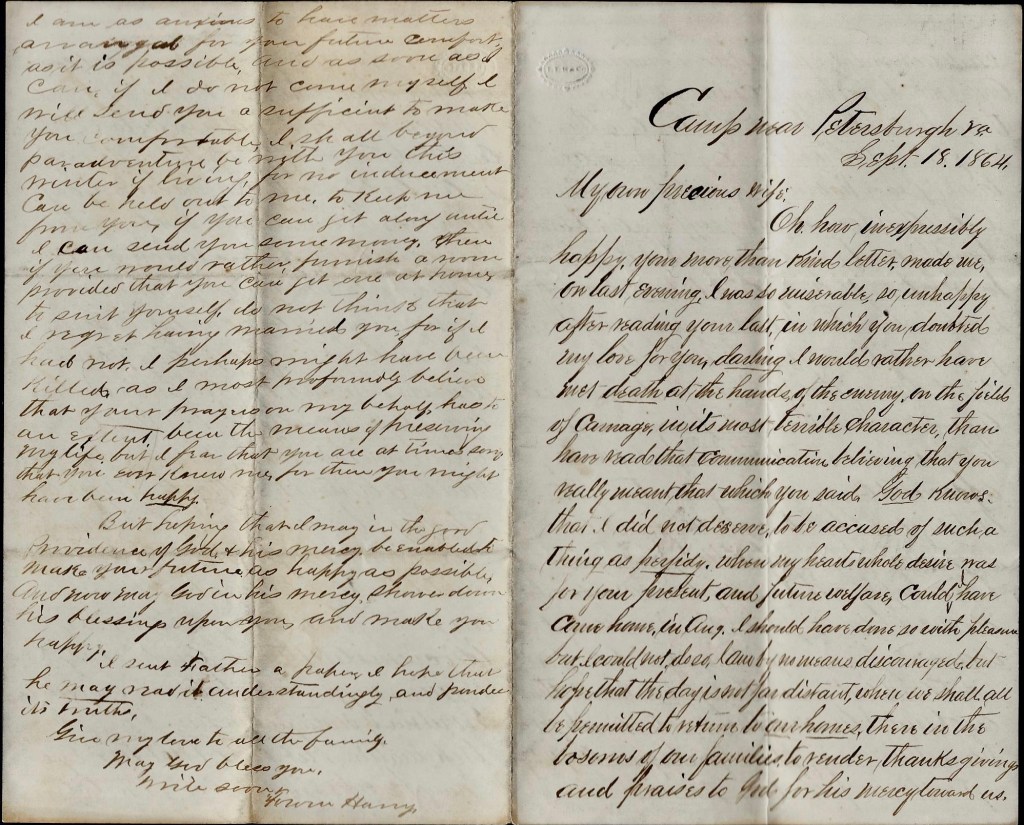 Camp near Petersburgh Va.
Sept. 18. 1864.
My own precious Wife.
Oh. how, inexpressibly
happy, your more than kind letter, made me,
on last, evening, I was so miserable, so, unhappy
after reading your last, in which you, doubted
my love for you, darling I would rather have
met death at, the hands, of the enemy, on the field
of Carnage, in its most terrible Character, than
have read that communication believing that you
really meant, that which you said. God knows.
that. I did not deserve, to be accused of such, a
thing as perfidy. when my hearts whole desire was
for your present, and future welfare, could I have
come home, in Aug. I should have done so with pleasure
but I could not, do so, I am by no means discouraged, but
hope that the day is not far distant, when we shall all
be permitted to return to our homes, there in the
bosoms of our families, to render, thanksgivings
and praises to God for his mercy toward us.
I am as anxious to have matters
arranged for your future comfort,
as it is possible, and as soon as I
can, if I do not come myself I
will send you a sufficient to make
you comfortable, I shall beyond
paradventure be with you this
winter if living, for no inducement
can be held out to me, to keep me
from you, if you can get along until
I can send you some money, then
if you would rather, furnish a room
provided that you can, get one at home,
be suit yourself, do not think that
I regret having married you for if I
had not, I perhaps might have been
killed, as I most profoundly believe
that your prayers on my behalf, has to
an extent, been the means of preserving
my life, but I fear that you are at times sorry
that you ever knew me, for then you might
have been happy.
But hoping that I may in the good
Providence of God, & his mercy, be enabled to
make your future, as happy as possible,
And now may God in his mercy, shower down
his blessings upon you, and make you
happy.
I sent Father a paper, I hope that
he may read it understandingly, and ponder
its truths,
Give my love to all the family.
May God bless you.
Write soon
Harry